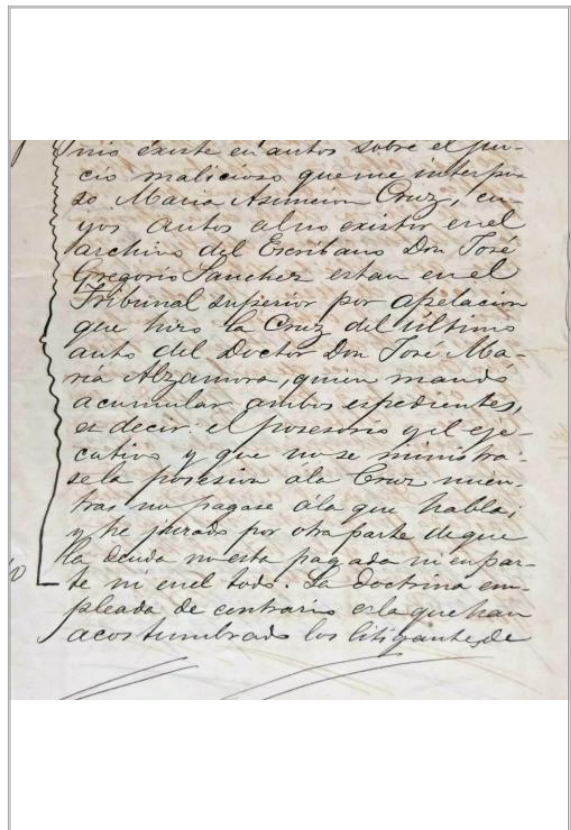 nio existe en autos sobre el jui-
cio malicioso que me interpu-
so Maria Asuncion Cruz, cu-
yos autos al no existir en el
archivo del Escribano Don José
Gregorio Sanchez estan en el
Tribunal superior por apelacion
que hizo la Cruz del último
auto del Doctor Don José Ma-
ria Alzamora, quien mandó
acumular ambos espedientes,
es decir: el posesorio y el eje-
cutivo y que no se ministra-
se la posesion á la Cruz mien-
tras no pagase á la que habla;
y he jurado por otra parte de que
la deuda no esta pagada ni en par-
te ni en el todo. La doctrina em-
pleada de contrario es la que han
acostumbrado los litigantes de